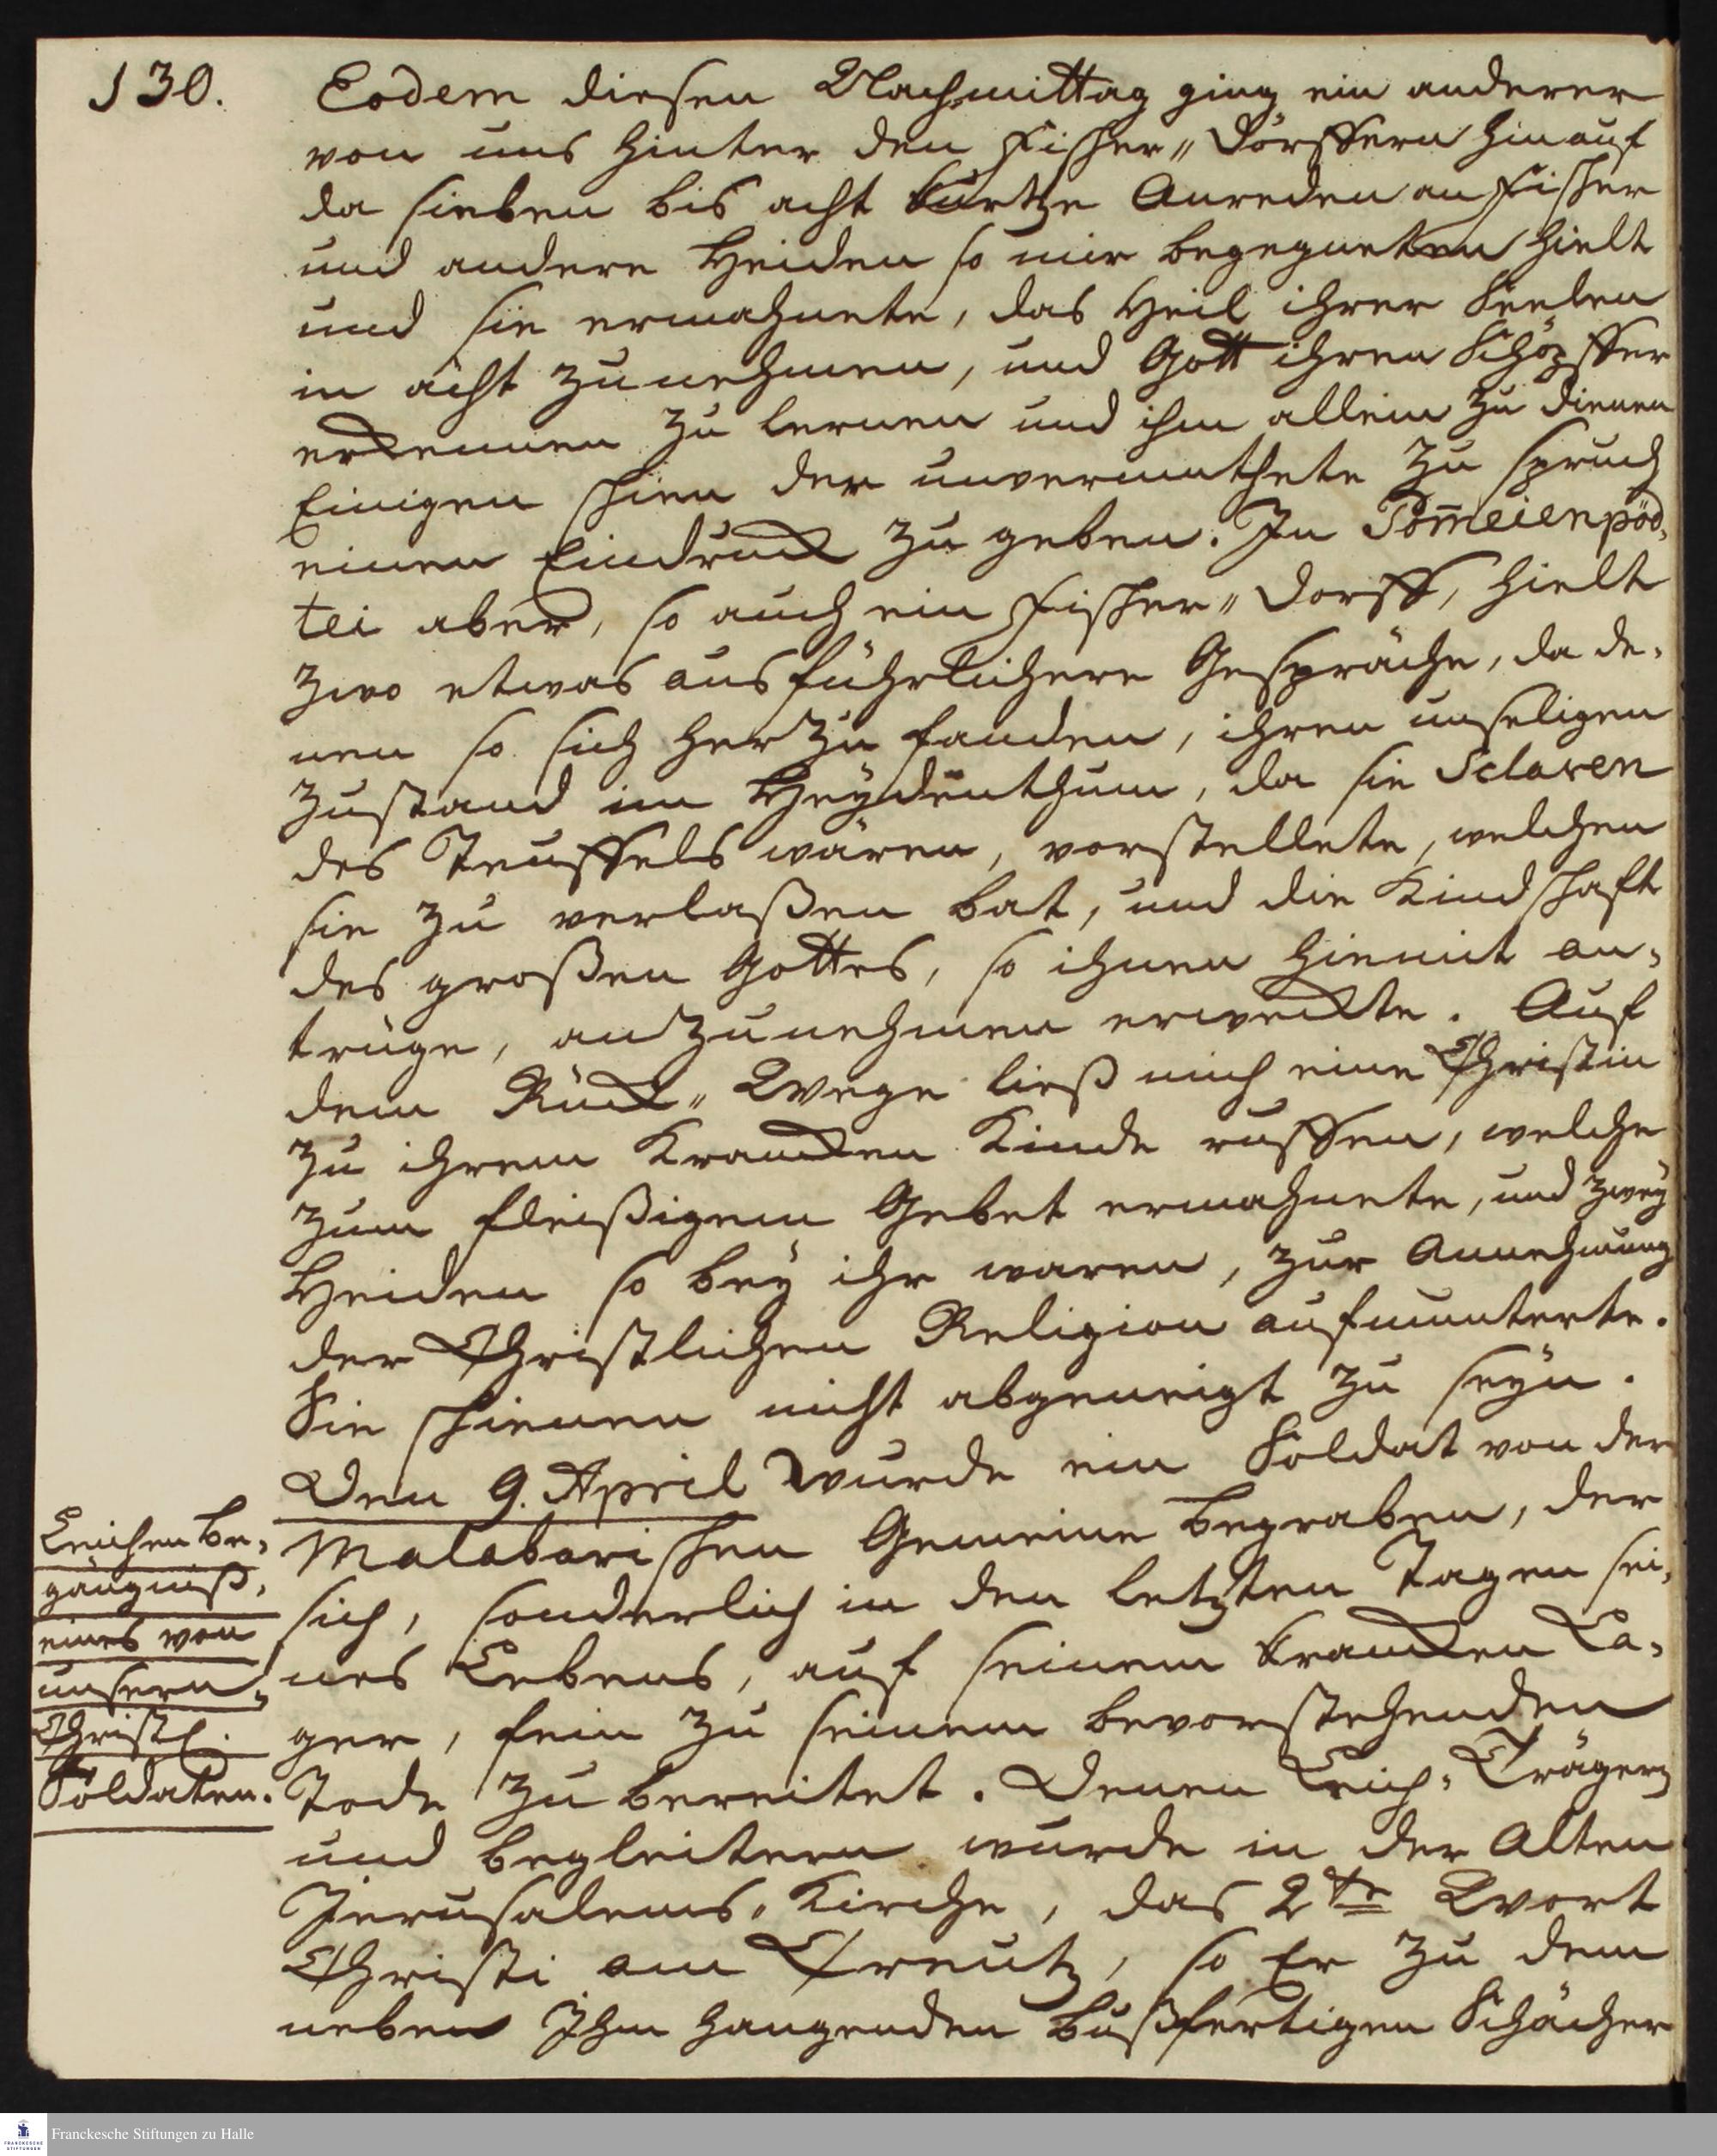 130.
Eodem diesen Nachmittag ging ein anderer
von uns hinter den Fischer„Dörffern hinauf
da sieben bis acht kurtze Anreden an Fischer
und andere Heiden so mir begegneten hielt
und sie ermahnete, das Heil ihrer Seelen
in acht zunehmen, und Gott ihren Schöpffer
erkennen zu lernen und ihm allein zu dienen
Einigen schien der unvermuthete Zu spruch
einen Eindruck zu geben. In Pom̄eienpöd„
tei aber, so auch ein Fischer„Dorff, hielt
zwo etwas ausführlichere Gespräche, da de„
nen so sich herzu fanden, ihren unseligen
Zustand im Heydenthum, da sie Sclaven
des Teuffels wären, vorstellete, welchen
sie zu verlaßen bat, und die Kindschaft
des großen Gottes, so ihnen hiemit an„
trüge, anzunehmen erweckte. Auf
dem Rück„Wege ließ mich eine Christin
zu ihrem Krancken Kinde ruffen, welche
zum fleißigem Gebet ermahnete, und zwey
Heiden so bey ihr waren, zur Annehmung
der Christlichen Religion aufmunterte.
Sie schienen nicht abgeneigt zu seyn.
Den 9. April wurde ein Soldat von der
Malabarischen Gemeine begraben, der
sich, sonderlich in den letzten Tagen sei„
nes Lebens, auf seinem krancken La„
ger, fein zu seinem bevorstehenden
Tode zubereitet. Denen Leich„Trägern
und begleitern wurde in der Alten
Jerusalems„Kirche, das 2te Wort
Christi am Creutz, so Er zu dem
neben Ihm hangenden bußfertigen Schächer
Leichen be„
gängniß,
eines von
unsern
Christl.
Soldaten.
Franckesche Stiftungen zu Halle
FRANCKESCHE
STIFTUNGEN